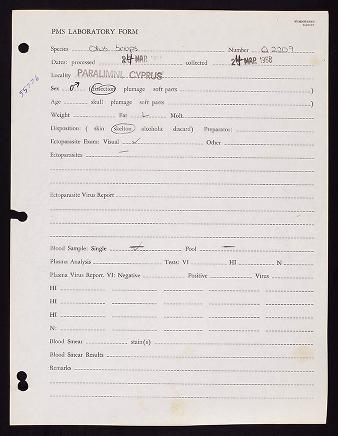 PMS LABORATORY FORM
Species Otus Scops Number Q 2209
Dates: processed 24 MAR collected 24 MAR 1968
Locality PARALIMNI, CYPRUS
Sex ♂ (dissection plumage soft parts )
Age skull plumage soft parts )
Weight Fat L Molt
Disposition: ( skin skeleton alcoholic discard) Preparator:
Ectoparasite Exam: Visual ✓ Other
Ectoparasites —
Ectoparasite Virus Report
Blood Sample: Single Pool —
Plasma Analysis Tests: VI HI N
Plasma Virus Report. VI: Negative Positive Virus
HI
HI
HI
N:
Blood Smear stain(s)
Blood Smear Results
Remarks